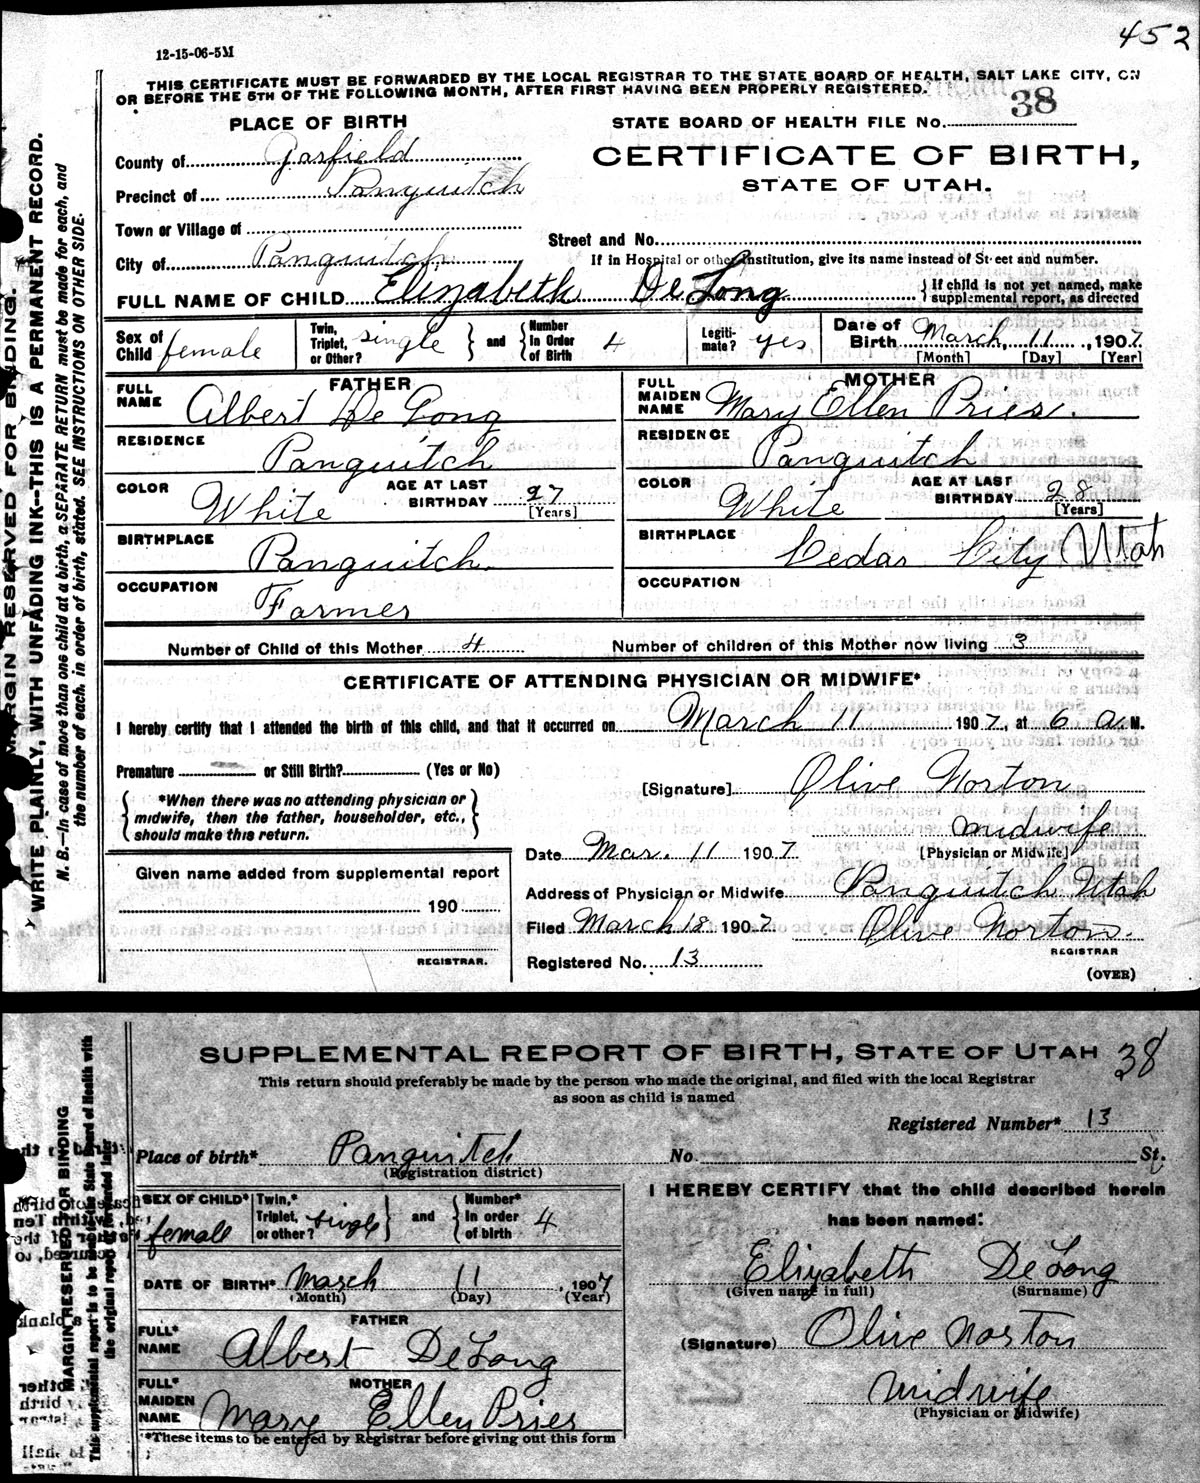 452
12-15-06-5M
THIS CERTIFICATE MUST BE FORWARDED BY THE LOCAL REGISTRAR TO THE STATE BOARD OF HEALTH, SALT LAKE CITY, ON
OR BEFORE THE 5TH OF THE FOLLOWING MONTH, AFTER FIRST HAVING BEEN PROPERLY REGISTERED.
MARGIN RESERVED FOR BINDING.
WRITE PLAINLY, WITH UNFADING INK--THIS IS A PERMANENT RECORD.
N. B.—In case of more than one child at a birth, a SEPARATE RETURN must be made for each, and
the number of each, in order of birth, stated. SEE INSTRUCTIONS ON OTHER SIDE.
PLACE OF BIRTH
STATE BOARD OF HEALTH FILE No. 38
County of Garfield
CERTIFICATE OF BIRTH,
Precinct of Panguitch
STATE OF UTAH.
Town or Village of
Street and No.
City of Panguitch
If in Hospital or other institution, give its name instead of Street and number.
FULL NAME OF CHILD Elizabeth De Long
If child is not yet named, make
supplemental report, as directed
Sex of Child female
Twin, Triplet, or Other? single and Number in Order of Birth 4
Legitimate? yes
Date of Birth March, 11, 1907
[Month] [Day] [Year]
FATHER
FULL NAME Albert De Long
RESIDENCE Panguitch
COLOR White AGE AT LAST BIRTHDAY 27 [Years]
BIRTHPLACE Panguitch
OCCUPATION Farmer
MOTHER
FULL MAIDEN NAME Mary Ellen Pries.
RESIDENCE Panguitch
COLOR White AGE AT LAST BIRTHDAY 28 [Years]
BIRTHPLACE Cedar City Utah
OCCUPATION
Number of Child of this Mother 4 Number of children of this Mother now living 3
CERTIFICATE OF ATTENDING PHYSICIAN OR MIDWIFE*
I hereby certify that I attended the birth of this child, and that it occurred on March 11 1907, at 6 a.M.
Premature or Still Birth? (Yes or No)
[Signature] Olive Norton
*When there was no attending physician or
midwife, then the father, householder, etc.,
should make this return.
midwife
[Physician or Midwife]
Date Mar. 11 1907
Given name added from supplemental report
190
REGISTRAR.
Address of Physician or Midwife Panguitch Utah
Filed March 18 1907 Olive Norton.
REGISTRAR
Registered No. 13
(OVER)
SUPPLEMENTAL REPORT OF BIRTH, STATE OF UTAH 38
This return should preferably be made by the person who made the original, and filed with the local Registrar
as soon as child is named
Registered Number* 13
MARGIN RESERVED FOR BINDING
This supplemental report is to be filed with the State Board of Health with
the original report
Place of birth* Panguitch No. St.
(Registration district)
SEX OF CHILD* female
Twin,* Triplet, or other? single and Number* in order of birth 4
DATE OF BIRTH* March 11, 1907
(Month) (Day) (Year)
FATHER
FULL* NAME Albert De Long
MOTHER
FULL* MAIDEN NAME Mary Ellen Pries
*These items to be entered by Registrar before giving out this form
I HEREBY CERTIFY that the child described herein
has been named:
Elizabeth De Long
(Given name in full) (Surname)
(Signature) Olive Norton
Midwife
(Physician or Midwife)